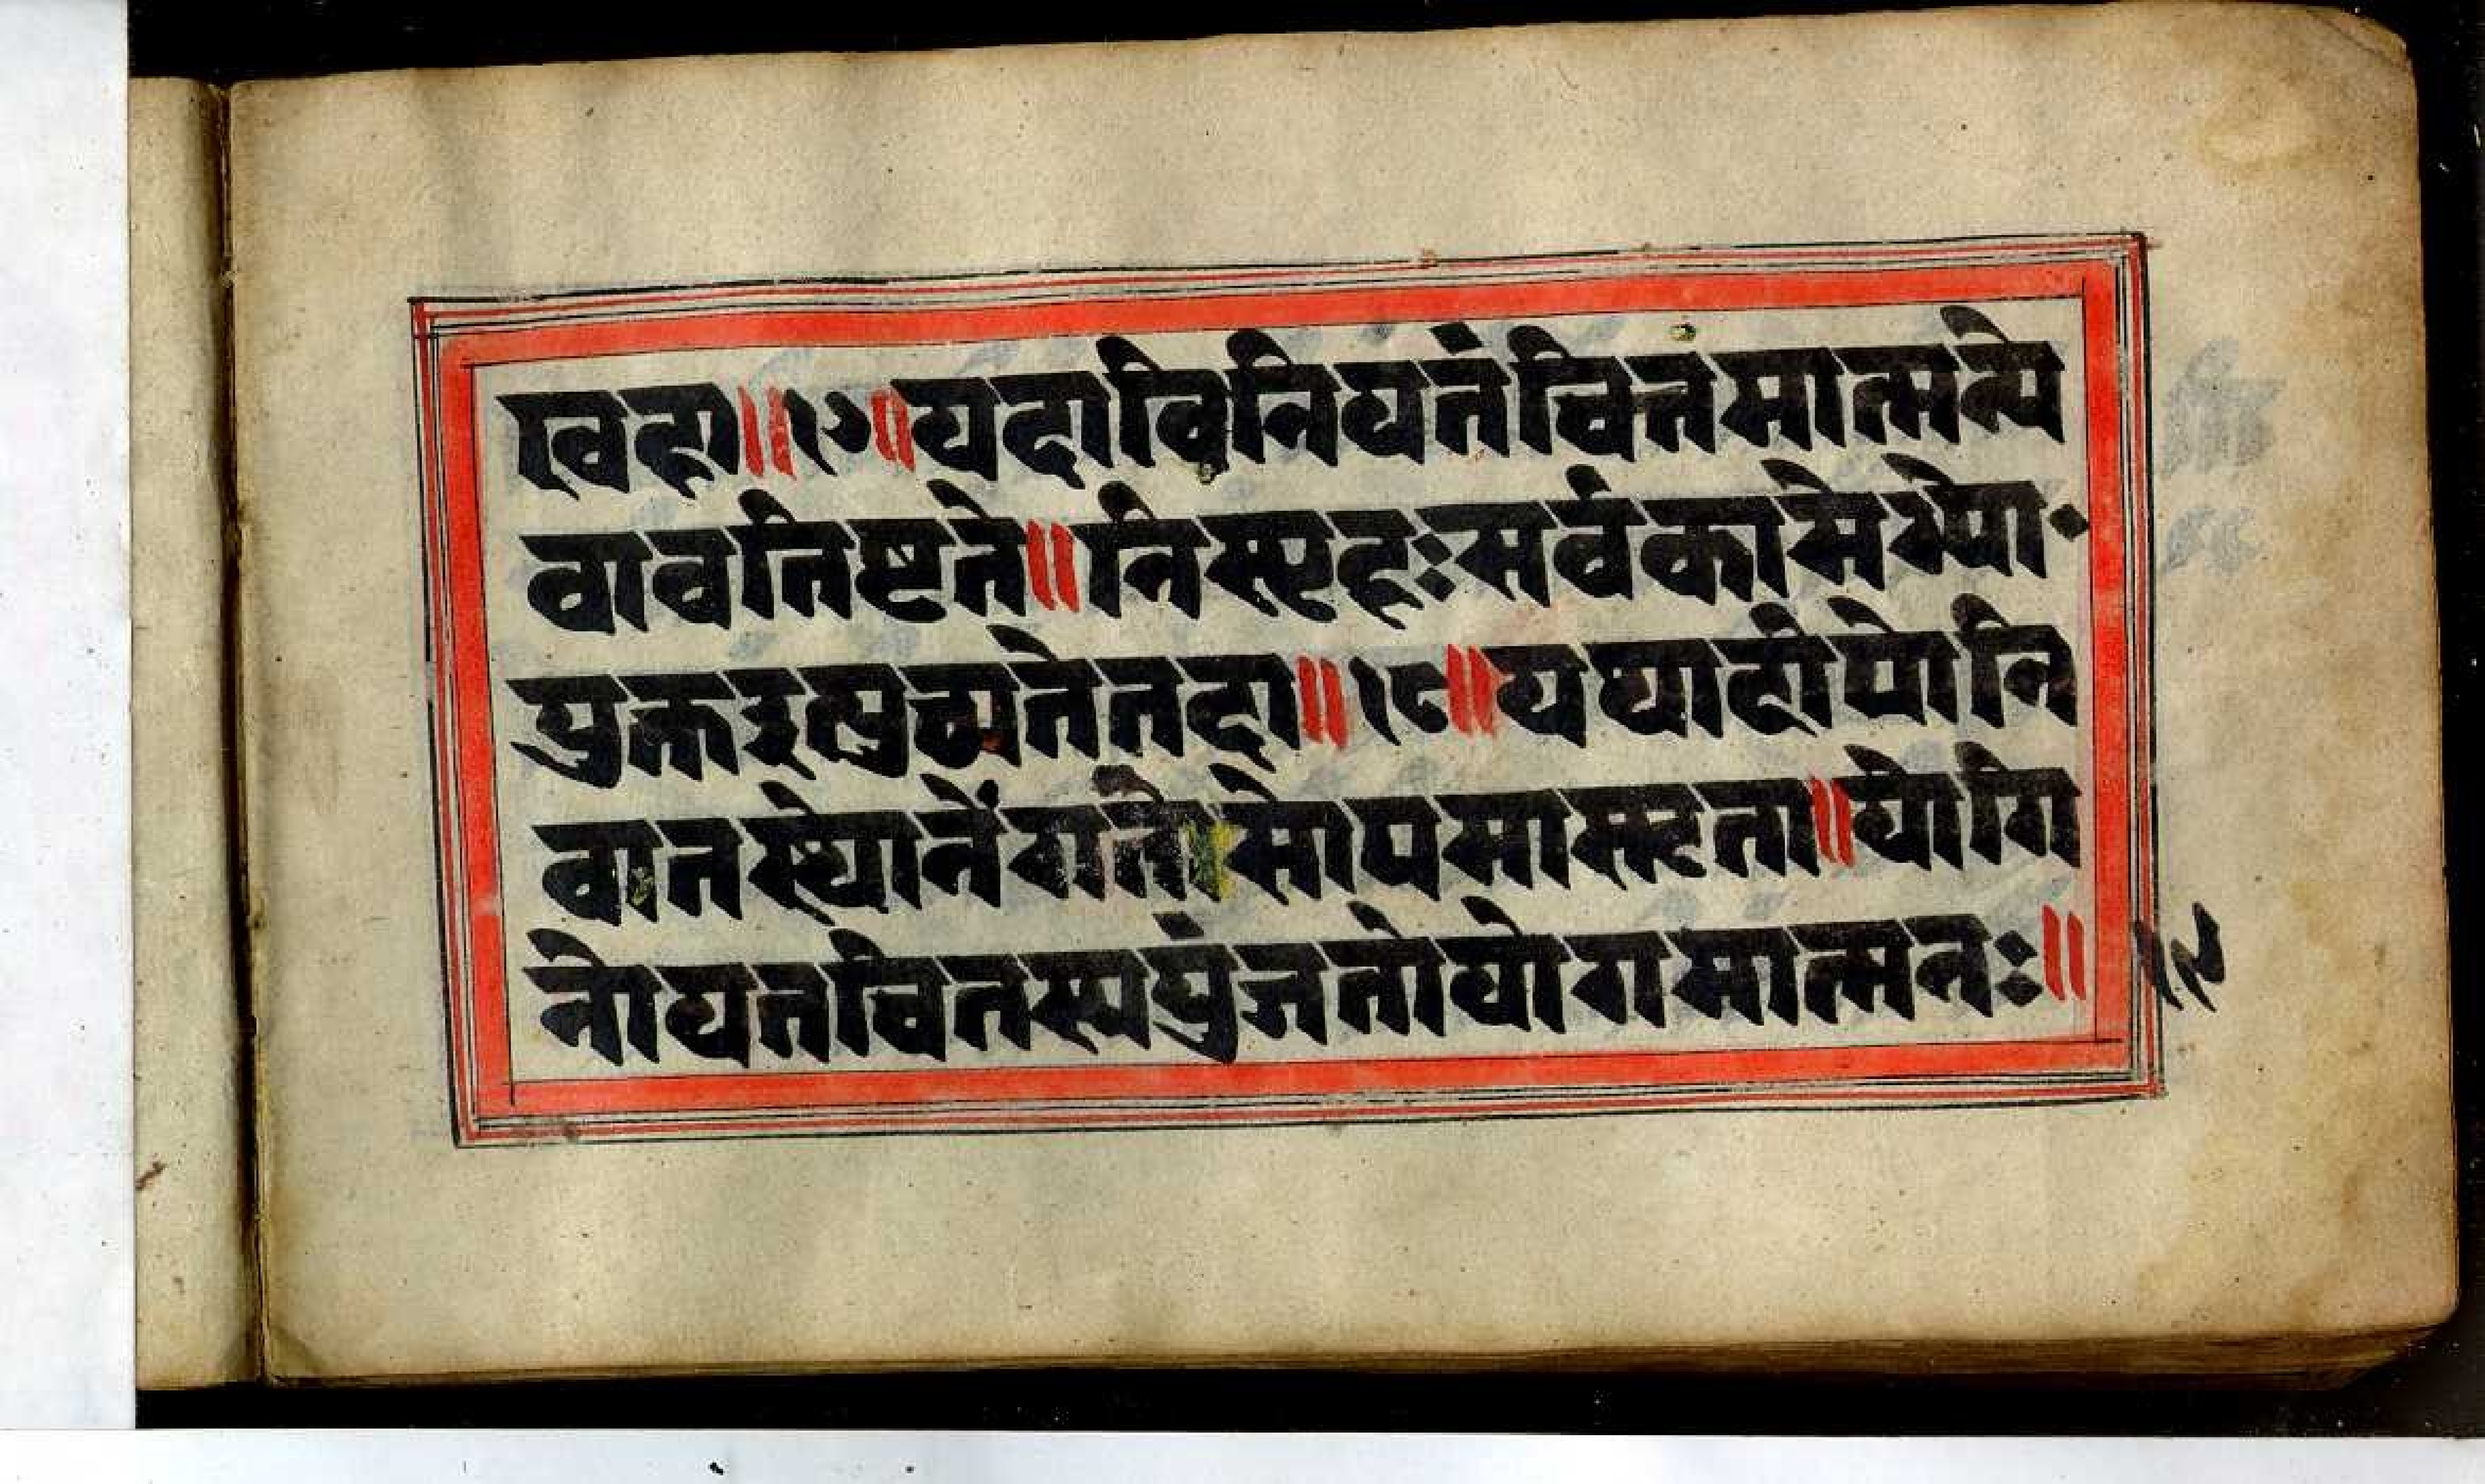 खहा॥१७॥यदाविनियतंचित्तमात्मन्ये
वावतिष्टते॥निस्पृहःसर्वकामेभ्यो
युक्तइत्युच्यतेतदा॥१८॥यथादीपोनि
वातस्थोनेंगतेसोपमास्मृता॥योगि
नोयतचित्तस्ययुंजतोयोगमात्मनः॥
१९